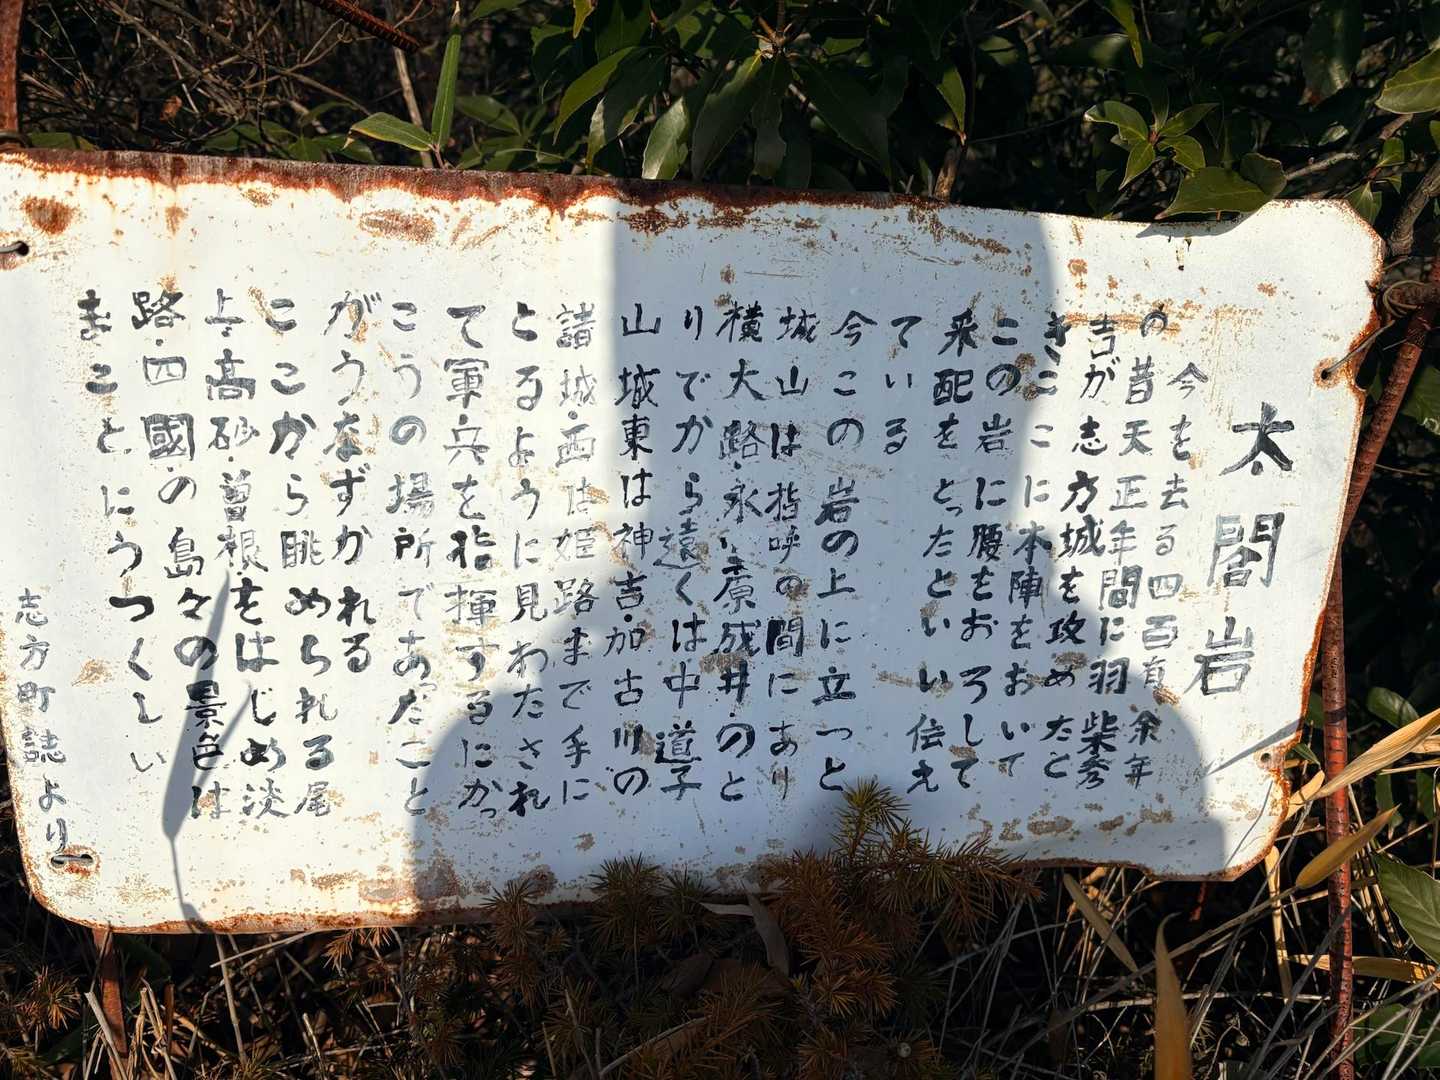 太閤岩
今を去る四百有余年
の昔天正年間に羽柴秀
吉が志方城を攻めたと
きここに本陣をおいて
この岩に腰をおろして
采配をとったといい伝え
ている
今この岩の上に立つと
城山は指呼の間にあり
横大路・永室原成井のと
りでから遠くは中道子
山城東は神吉・加古川の
諸城・西は姫路まで手に
とるように見わたされ
て軍兵を指揮するにかっ
こうの場所であだこと
がうなずかれる
ここから眺められる尾
上・高砂・曽根をはじめ淡
路・四國・の島々の景色は
まことにうつくしい
志方町誌より